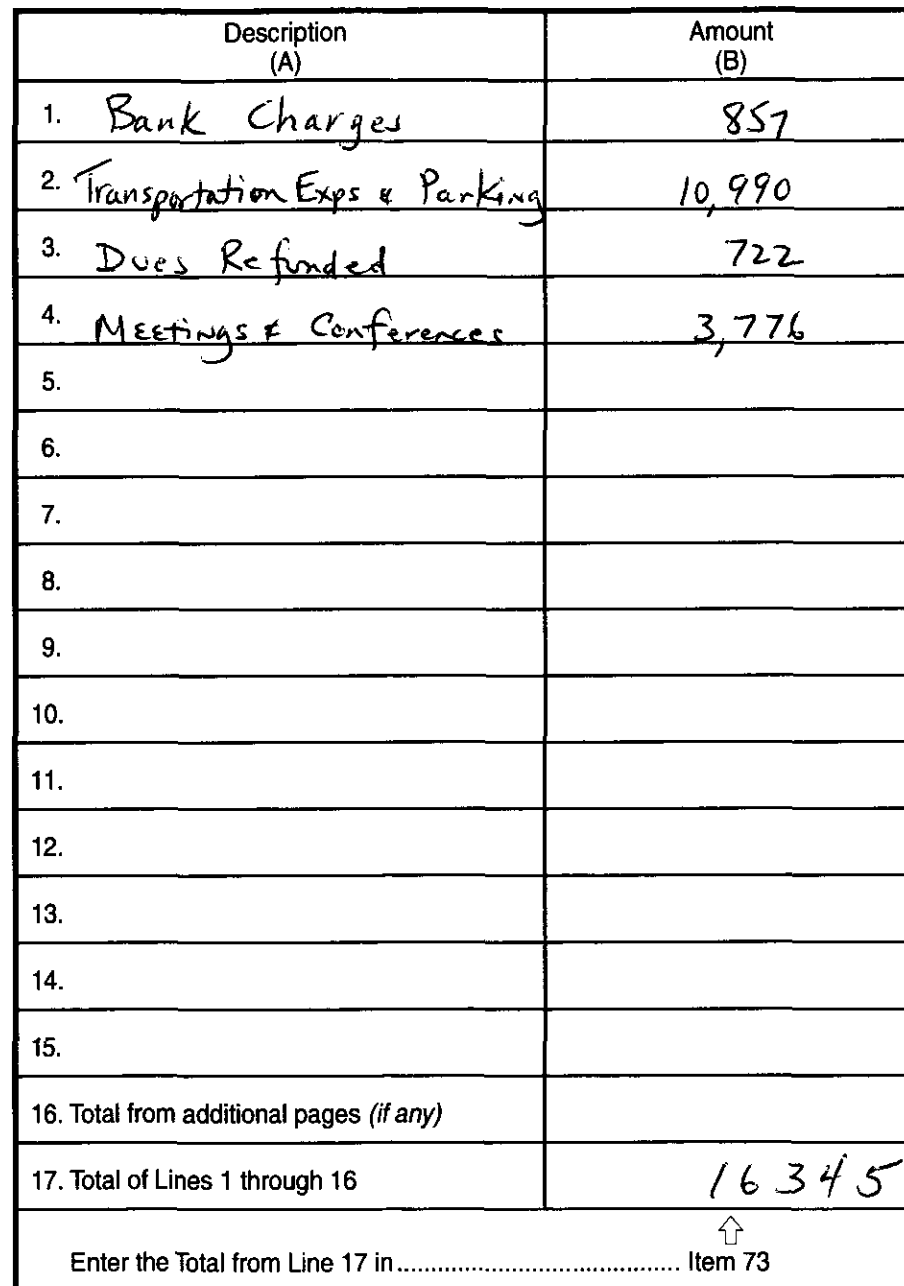 Description Amount
(A) (B)
1. Bank Charges 857
2. Transportation Exps & Parking 10,990
3. Dues Refunded 722
4. Meetings & Conferences 3,776
5.
6.
7.
8.
9.
10.
11.
12.
13.
14.
15.
16. Total from additional pages (if any)
17. Total of Lines 1 through 16 16345
Enter the Total from Line 17 in ........................................ Item 73